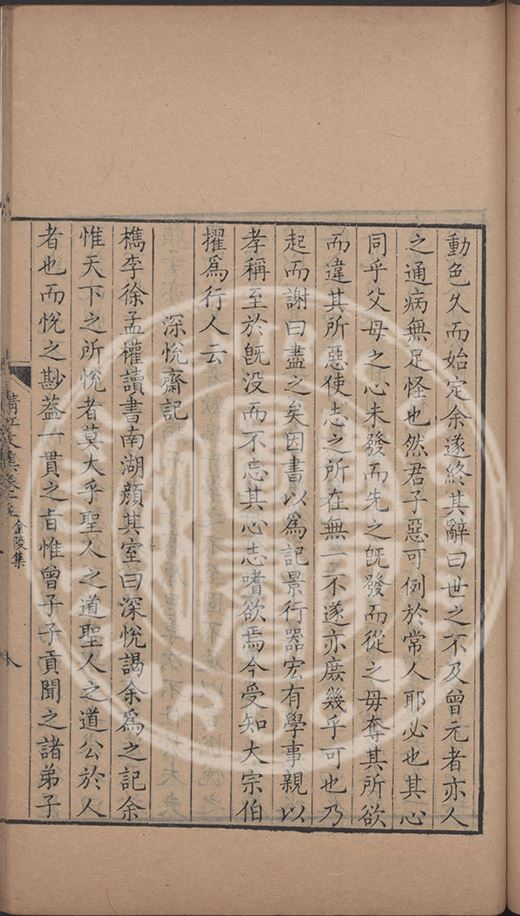 動色久而始定余遂終其辭曰世之不及曾元者亦人
之通病無足怪也然君子惡可例於常人耶必也其心
同乎父母之心未發而先之旣發而從之毋奪其所欲
而違其所惡使志之所在無一不遂亦庶幾乎可也乃
起而謝曰盡之矣因書以爲記景行器宏有學事親以
孝稱至於旣没而不忘其心志嗜欲焉今受知大宗伯
擢爲行人云
深悅齋記
檇李徐孟權讀書南湖顏其室曰深悅謁余爲之記余
惟天下之所悅者莫大乎聖人之道聖人之道公於人
者也而悅之尠葢一貫之㫖惟曾子子貢聞之諸弟子
清江文集卷十五 金陵集